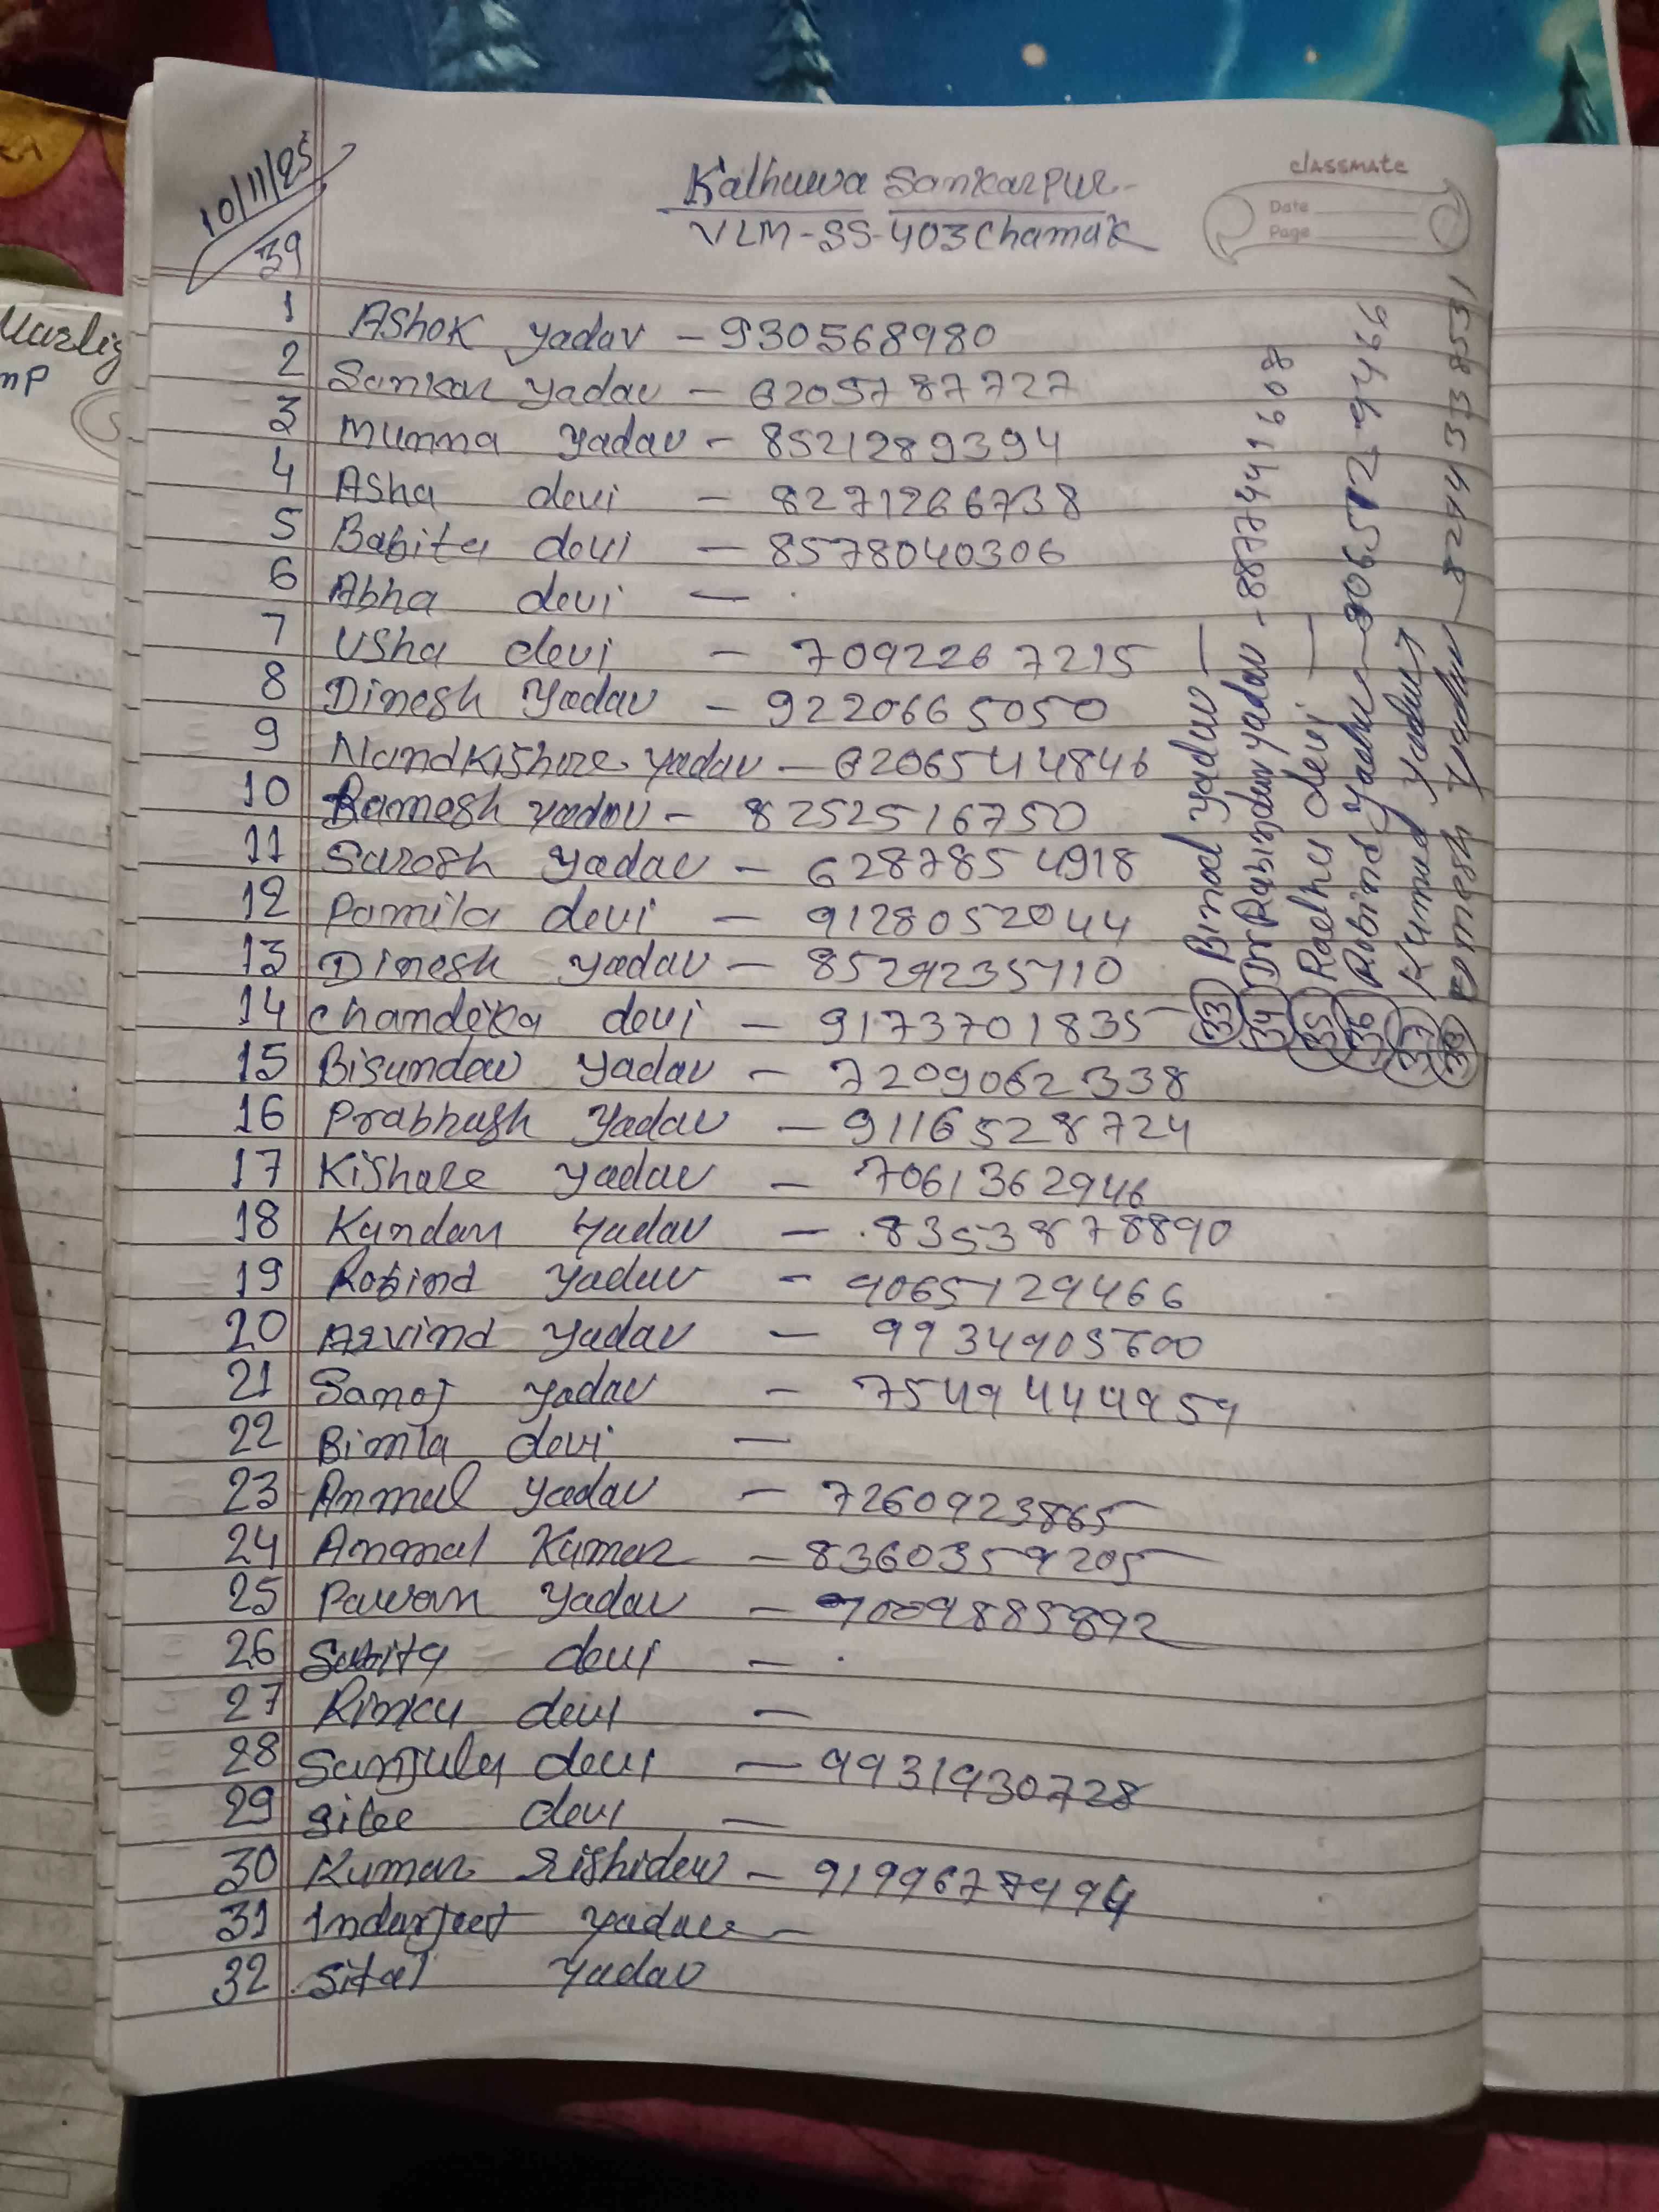 10/11/25
39
Kathuwa Sankarpur
VLM-SS-403 Chamak
classmate
Date
Page
1 Ashok yadav - 930568980
2 Sankar yadav - 6205787727
3 Munna yadav - 8521289394
4 Asha devi - 8271266738
5 Babita devi - 8578040306
6 Abha devi -
7 Usha devi - 7092267215
8 Dinesh Yadav - 9220665050
9 Nandkishore yadav - 6206544846
10 Ramesh yadav - 8252516750
11 Sarosh yadav - 6287854918
12 Pamila devi - 9128052044
13 Dinesh yadav - 8529235710
14 chandeka devi - 9173701835
15 Bisundev yadav - 7209062338
16 Prabhash yadav - 9116528724
17 Kishore yadav - 7061362946
18 Kundan yadav - 8353878890
19 Robind yadav - 9065129466
20 Arvind yadav - 9934905600
21 Sanoj yadav - 7549444959
22 Bimla devi -
23 Anmul yadav - 7260923865
24 Anmal Kumar - 8360359205
25 Pawan yadav - 7009885892
26 Sabita devi -
27 Rinku devi -
28 Sanjula devi - 9931930728
29 devi -
30 Kumar Rishidev - 9199677994
31 Indarjeet yadav -
32 Sital yadav
33 Binod yadav -
34 Dr Rabindra yadav - 8877441608
35 Radhu devi -
36 Robind Yadav - 9065129466
37 Kumod yadav
38 Umesh yadav - 8294338531
Uarlig
mp